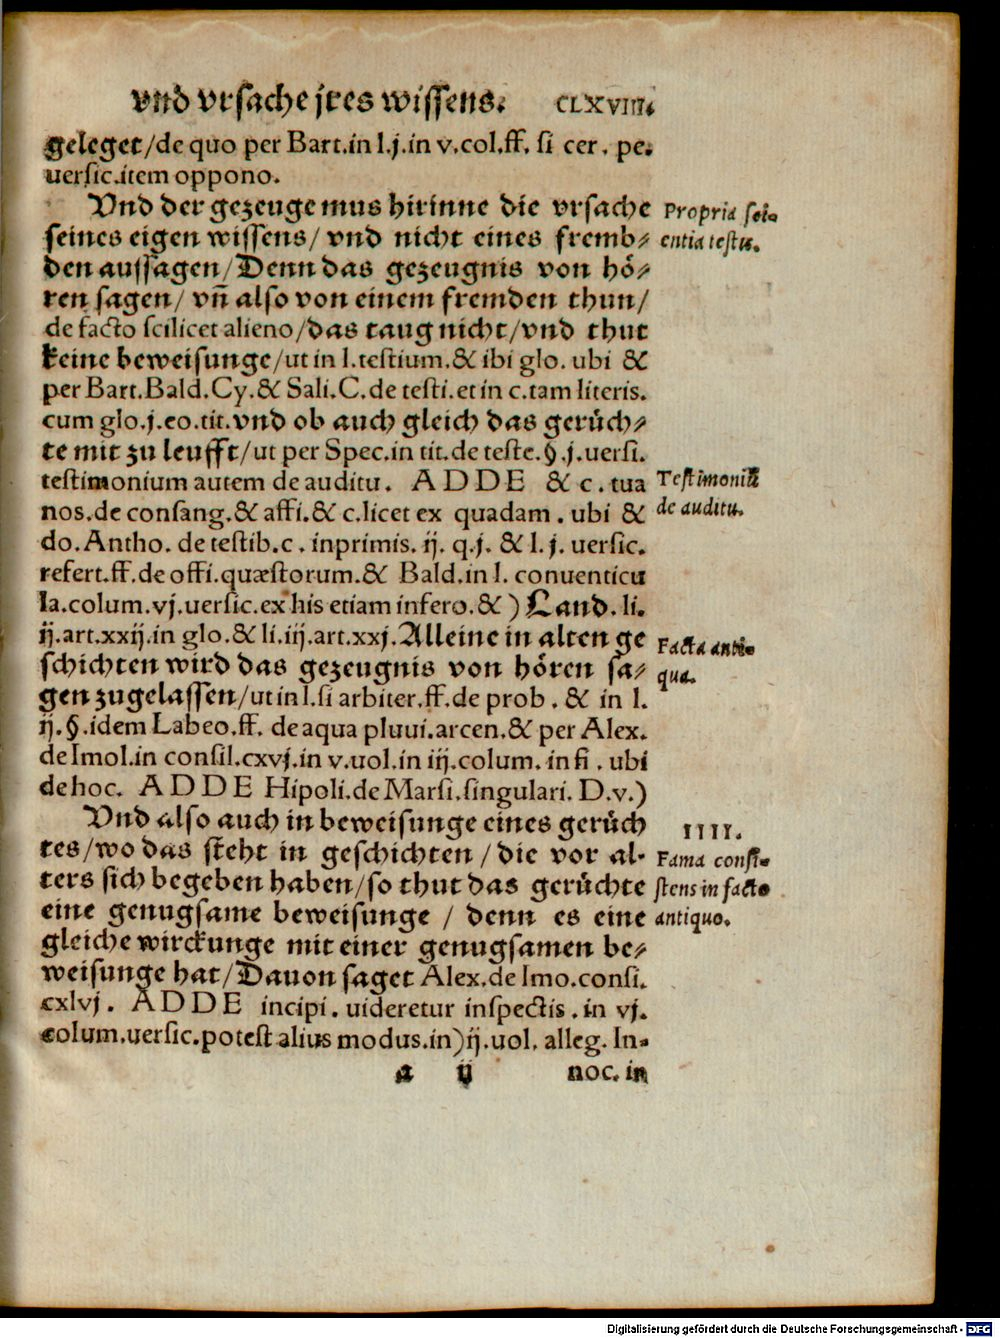 vnd vrsache jres wissens. CLXVIII.
geleget/de quo per Bart.in l.j.in v.col.ff. si cer. pe.
uersic.item oppono.
Vnd der gezeuge mus hirinne die vrsache
seines eigen wissens/ vnd nicht eines fremb⸗
den aussagen/Denn das gezeugnis von hoͤ⸗
ren sagen/ vn̄ also von einem fremden thun/
de facto scilicet alieno/das taug nicht/vnd thut
keine beweisunge/ut in l.testium.& ibi glo. ubi &
per Bart.Bald.Cy.& Sali.C.de testi.et in c.tam literis.
cum glo.j.eo.tit.vnd ob auch gleich das geruͤch⸗
te mit zu leufft/ut per Spec.in tit.de teste.§.j.uersi.
testimonium autem de auditu. ADDE & c.tua
nos.de consang.& affi.& c.licet ex quadam. ubi &
do.Antho. de testib.c. inprimis. ij. q.j. & l. j. uersic.
refert.ff.de offi.quæstorum.& Bald.in l. conuenticu
la.colum.vj.uersic.ex his etiam infero.& ) Land. li.
ij.art.xxij.in glo.& li.iij.art.xxj.Alleine in alten ge
schichten wird das gezeugnis von hoͤren sa⸗
gen zugelassen/ut in l.si arbiter.ff.de prob. & in l.
ij.§.idem Labeo.ff. de aqua pluui.arcen.& per Alex.
de Imol.in consil.cxvj.in v.uol.in iij.colum. in fi. ubi
de hoc. ADDE Hipoli.de Marsi.singulari. D.v.)
Vnd also auch in beweisunge eines geruͤch
tes/wo das steht in geschichten/die vor al⸗
ters sich begeben haben/so thut das geruͤchte
eine genugsame beweisunge / denn es eine
gleiche wirckunge mit einer genugsamen be⸗
weisunge hat/Dauon saget Alex.de Imo.consi.
cxlvj. ADDE incipi. uideretur inspectis. in vj.
colum.uersic.potest alius modus.in)ij.uol. alleg. In⸗
a ij noc. in
Propria sci⸗
entia testis.
Testimoniū
de auditu.
Facta anti⸗
qua.
IIII.
Fama consi⸗
stens in facto
antiquo.
Digitalisierung gefördert durch die Deutsche Forschungsgemeinschaft - DFG